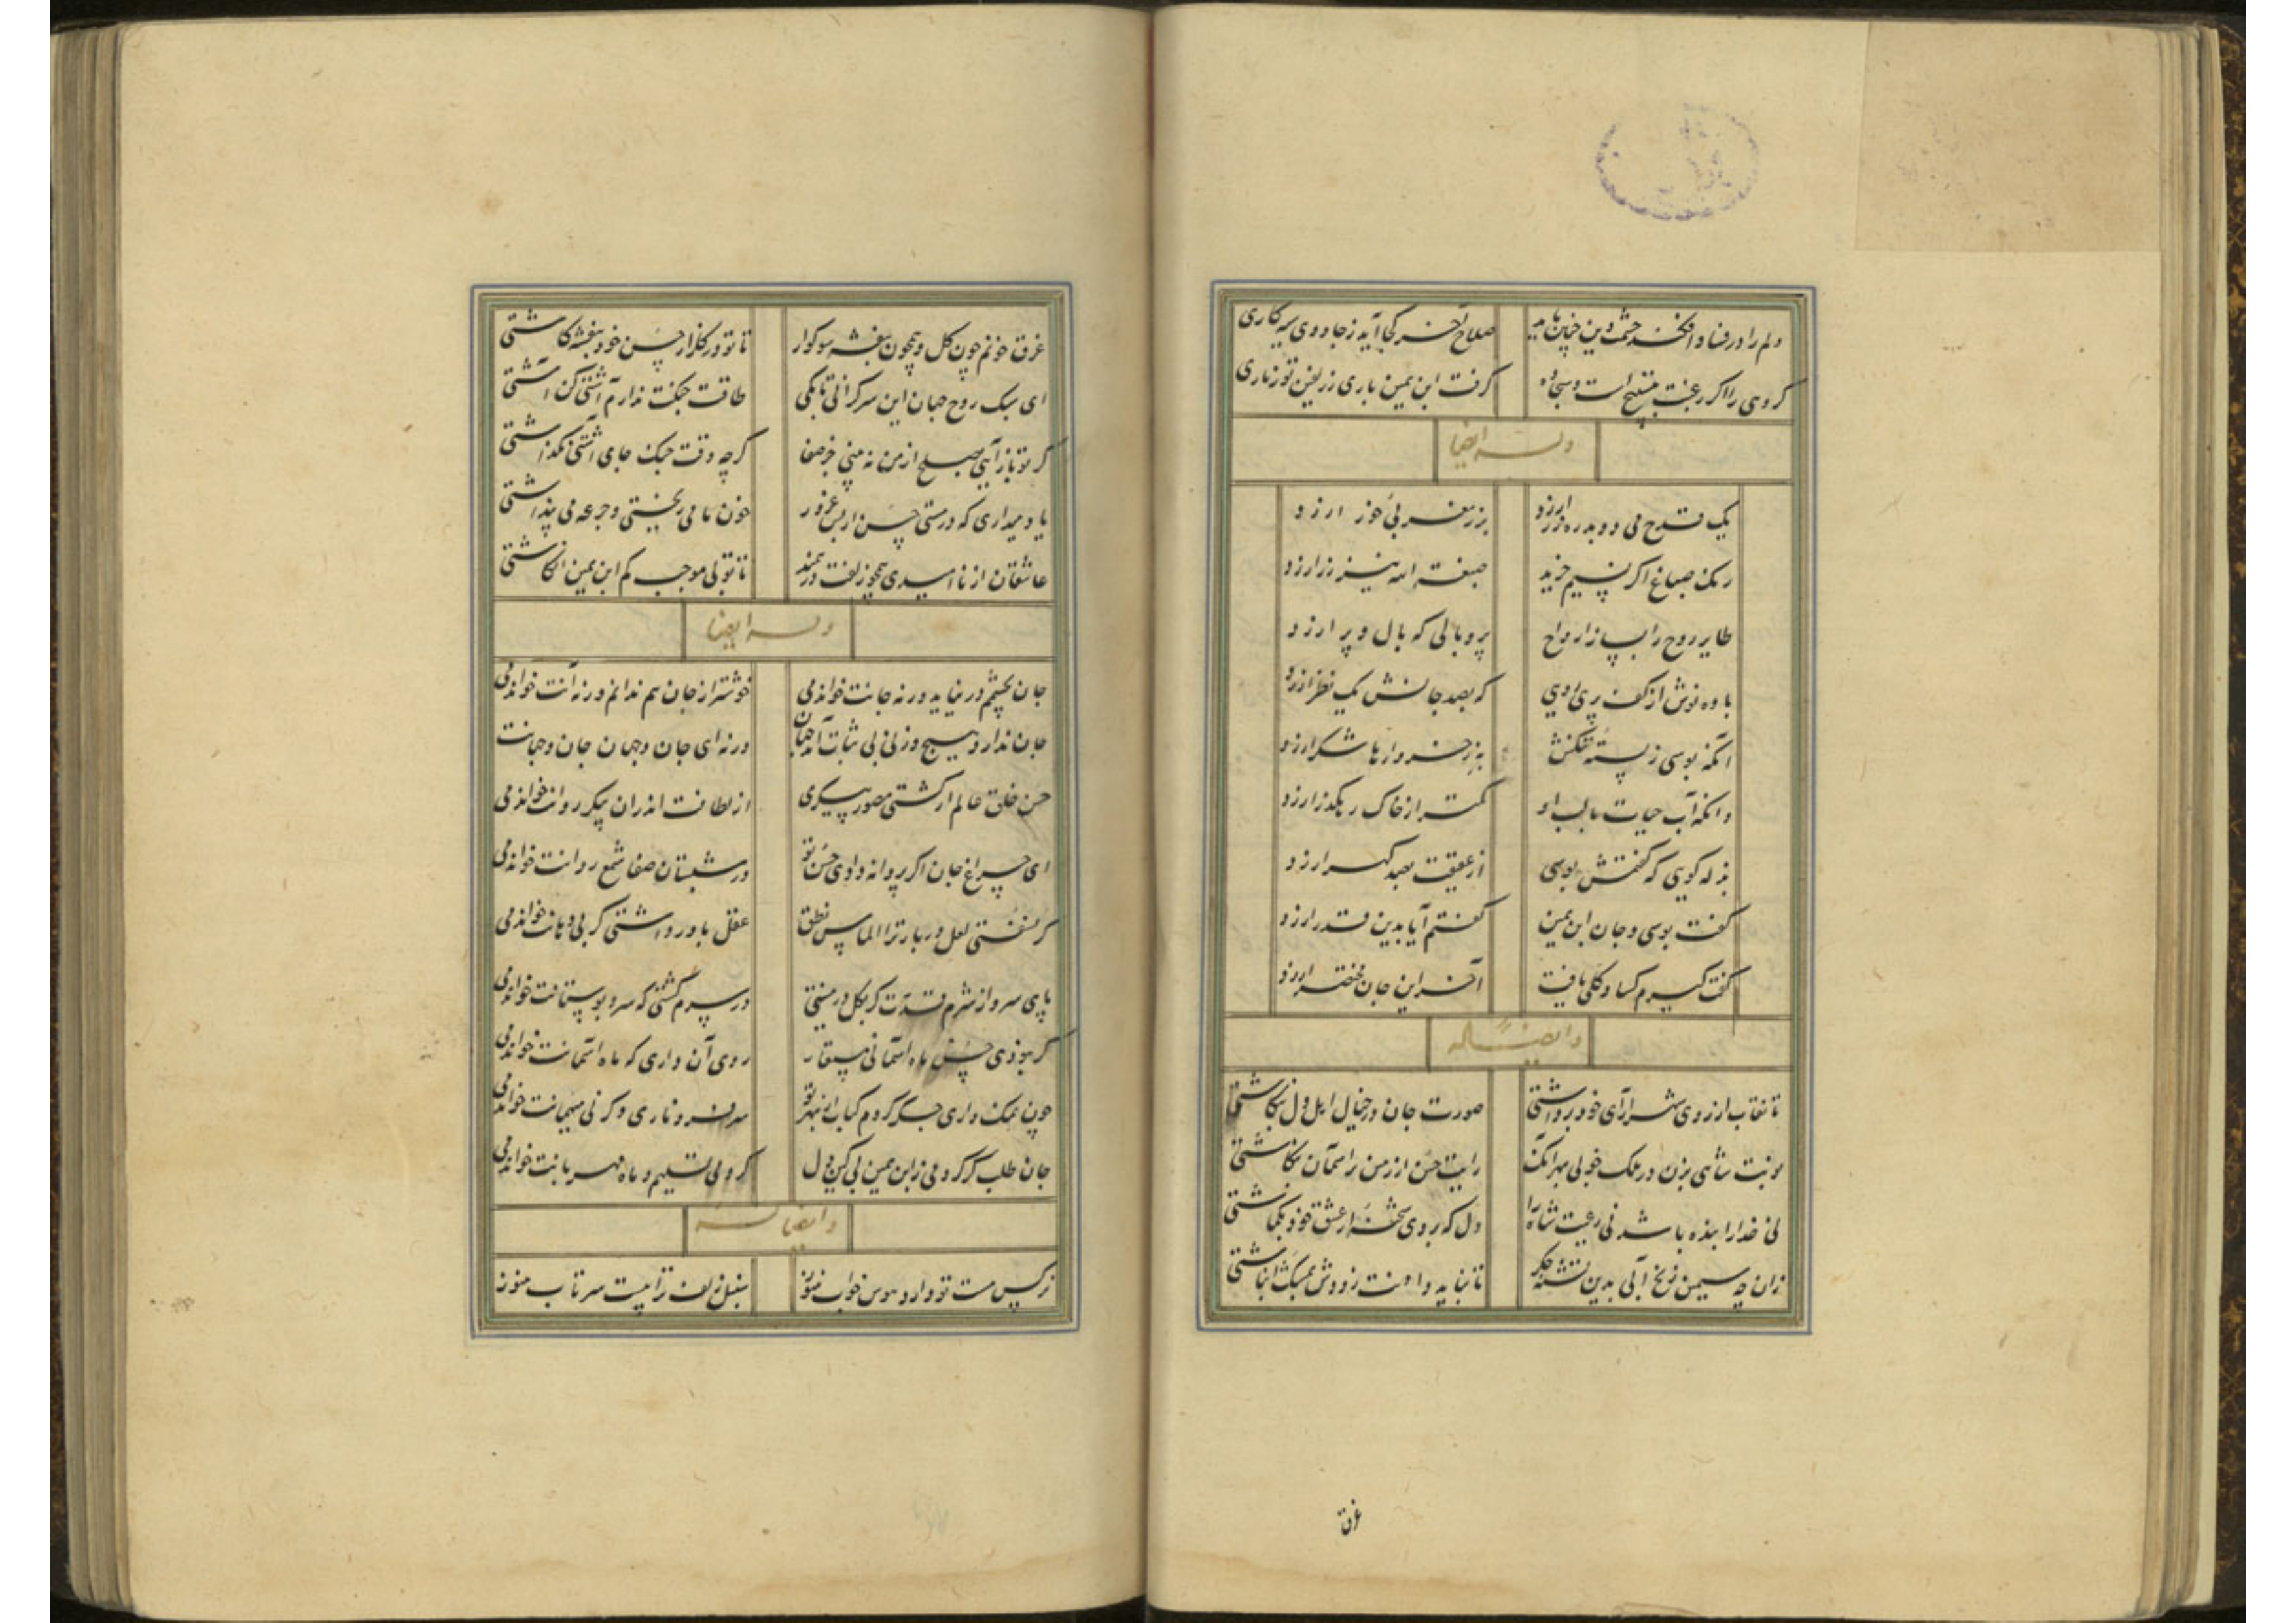 دلم را در فساد افکند چشمت وین چنین باید صلاح آخر کجا آید ز جادوی سیه کاری
کروهی را اکر رغبت بتسبیح است و سجاده کرفت ابن یمین باری ز زلفین تو زناری
وله ایضا
یک قدح می دو بدره زر ارزد بزر مغربی خور ارزد
رنک صباغ اکر بسیم خرید صبغة الله نیز زر ارزد
طایر روح را پس از ارواح پر و بالی که بال و پر ارزد
باده نوش از کف پری رویی که بصد جانش یک نظر ارزد
آنکه بوسی ز پسته تنکش به ز خروارها شکر ارزد
وانکه آب حیات با لب او کمتر از خاک رهکذر ارزد
بذله کویی که کفتمش بوسی از عقیقت بصد کهر ارزد
کفت بوسی و جان ابن یمین کفتم آیا بدین قدر ارزد
کفت کیرم کساد کلی یافت آخر این جان مختصر ارزد
وایضا له
تا نقاب از روی شهر آرای خود برداشتی صورت جان در خیال اهل دل بنکاشتی
نوبت شاهی بزن در ملک خوبی بهر آنک رایت حسن از زمین بر آسمان بکاشتی
نی خدا را بنده باشد نی رعیت شاه را دل که بر وی شحنه از عشق خود بکماشتی
زان چه سیمین زنخ آبی بدین تشنه جکر تا نیاید دامنت ز دوش بمشک انباشتی
غرق
غرق خونم چون کل و همچون بنفشه سوکوار تا تو در کلزار حسن خود بنفشه کاشتی
ای سبک روح جهان این سرکرانی تا بکی طاقت جنکت ندارم آشتی کن آشتی
کر تو باز آیی بصلح از من نه بینی جز صفا کرچه وقت جنک جای آشتی نکذاشتی
یاد میداری که در مستی حسن از بس غرور خون ما می ریختی و جرعه می پنداشتی
عاشقان از ناامیدی همچو زلفت درهمند تا تو بی موجب کم ابن یمین انکاشتی
وله ایضا
جان بچشم در نیاید ورنه جانت خواندمی خوشتر از جان هم ندانم ورنه آنت خواندمی
جان ندارد هیچ وزنی بی ثبات آمد جهان ورنه ای جان و جهان جان و جهانت
حسن خلق عالم ار کشتی مصور پیکری از لطافت اندران پیکر روانت خواندمی
ای چراغ جان اکر پروانه دادی حسن تو در شبستان صفا شمع روانت خواندمی
کر نسفتی لعل دربار ترا الماس نطق عقل باور داشتی کر بی دهانت خواندمی
پای سرو از شرم قدت کر بکل در نیستی در سرم کشتی که سرو بوستانت خواندمی
کر نبودی حسن ماه آسمانی مستعار روی آن داری که ماه آسمانت خواندمی
چون نمک داری جکر کردم کباب از بهر تو سر فرو ناری و کرنی میهمانت خواندمی
جان طلب کر کردمی ز ابن یمین بی کین دل کردمی تسلیم و ماه مهربانت خواندمی
وایضا له
نرکس مست تو دارد هوس خواب هنوز سنبل زلف ترا هست سر تاب هنوز